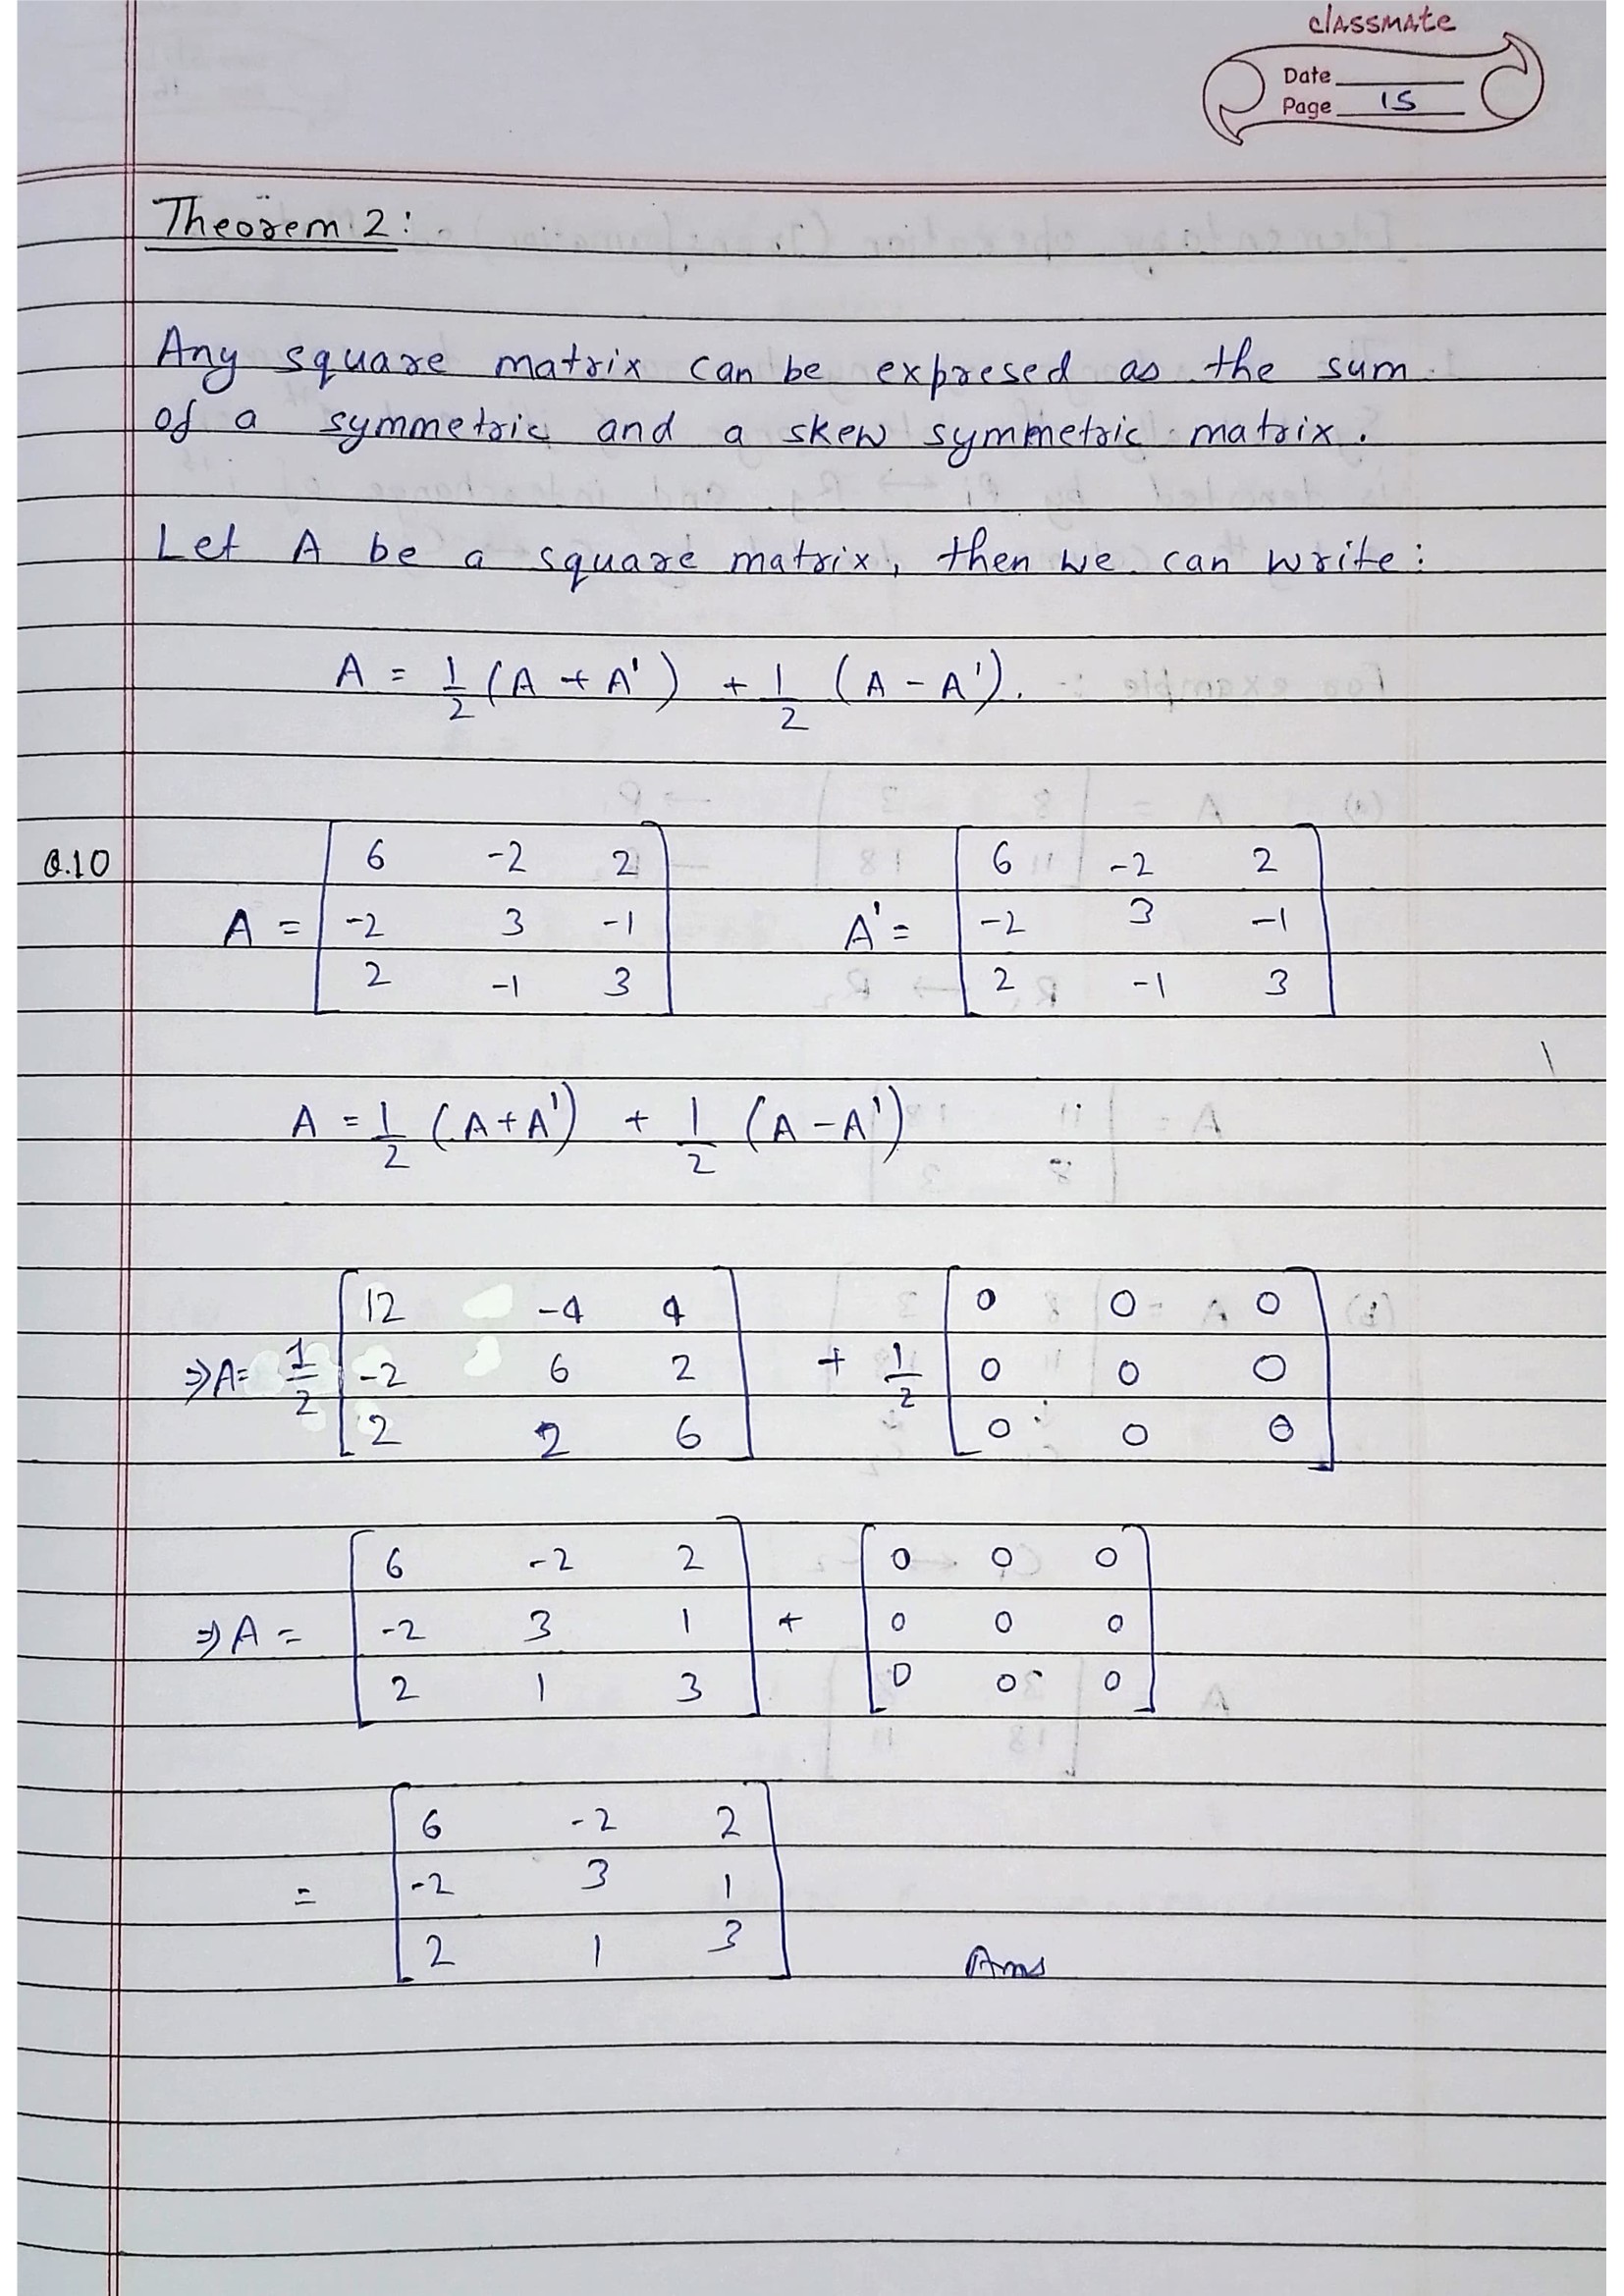 classmate
Date
Page 15
Theorem 2:
Any square matrix can be expresed as the sum
of a symmetric and a skew symmetric matrix.
Let A be a square matrix, then we can write:
A = 1/2 (A + A') + 1/2 (A - A').
Q.10
6 -2 2 6 -2 2
A = -2 3 -1 A' = -2 3 -1
2 -1 3 2 -1 3
A = 1/2 (A+A') + 1/2 (A-A')
12 -4 4 0 0 0
⇒A= 1/2 -2 6 2 + 1/2 0 0 0
2 2 6 0 0 0
6 -2 2 0 0 0
⇒A = -2 3 1 + 0 0 0
2 1 3 0 0 0
6 -2 2
= -2 3 1
2 1 3 Ans